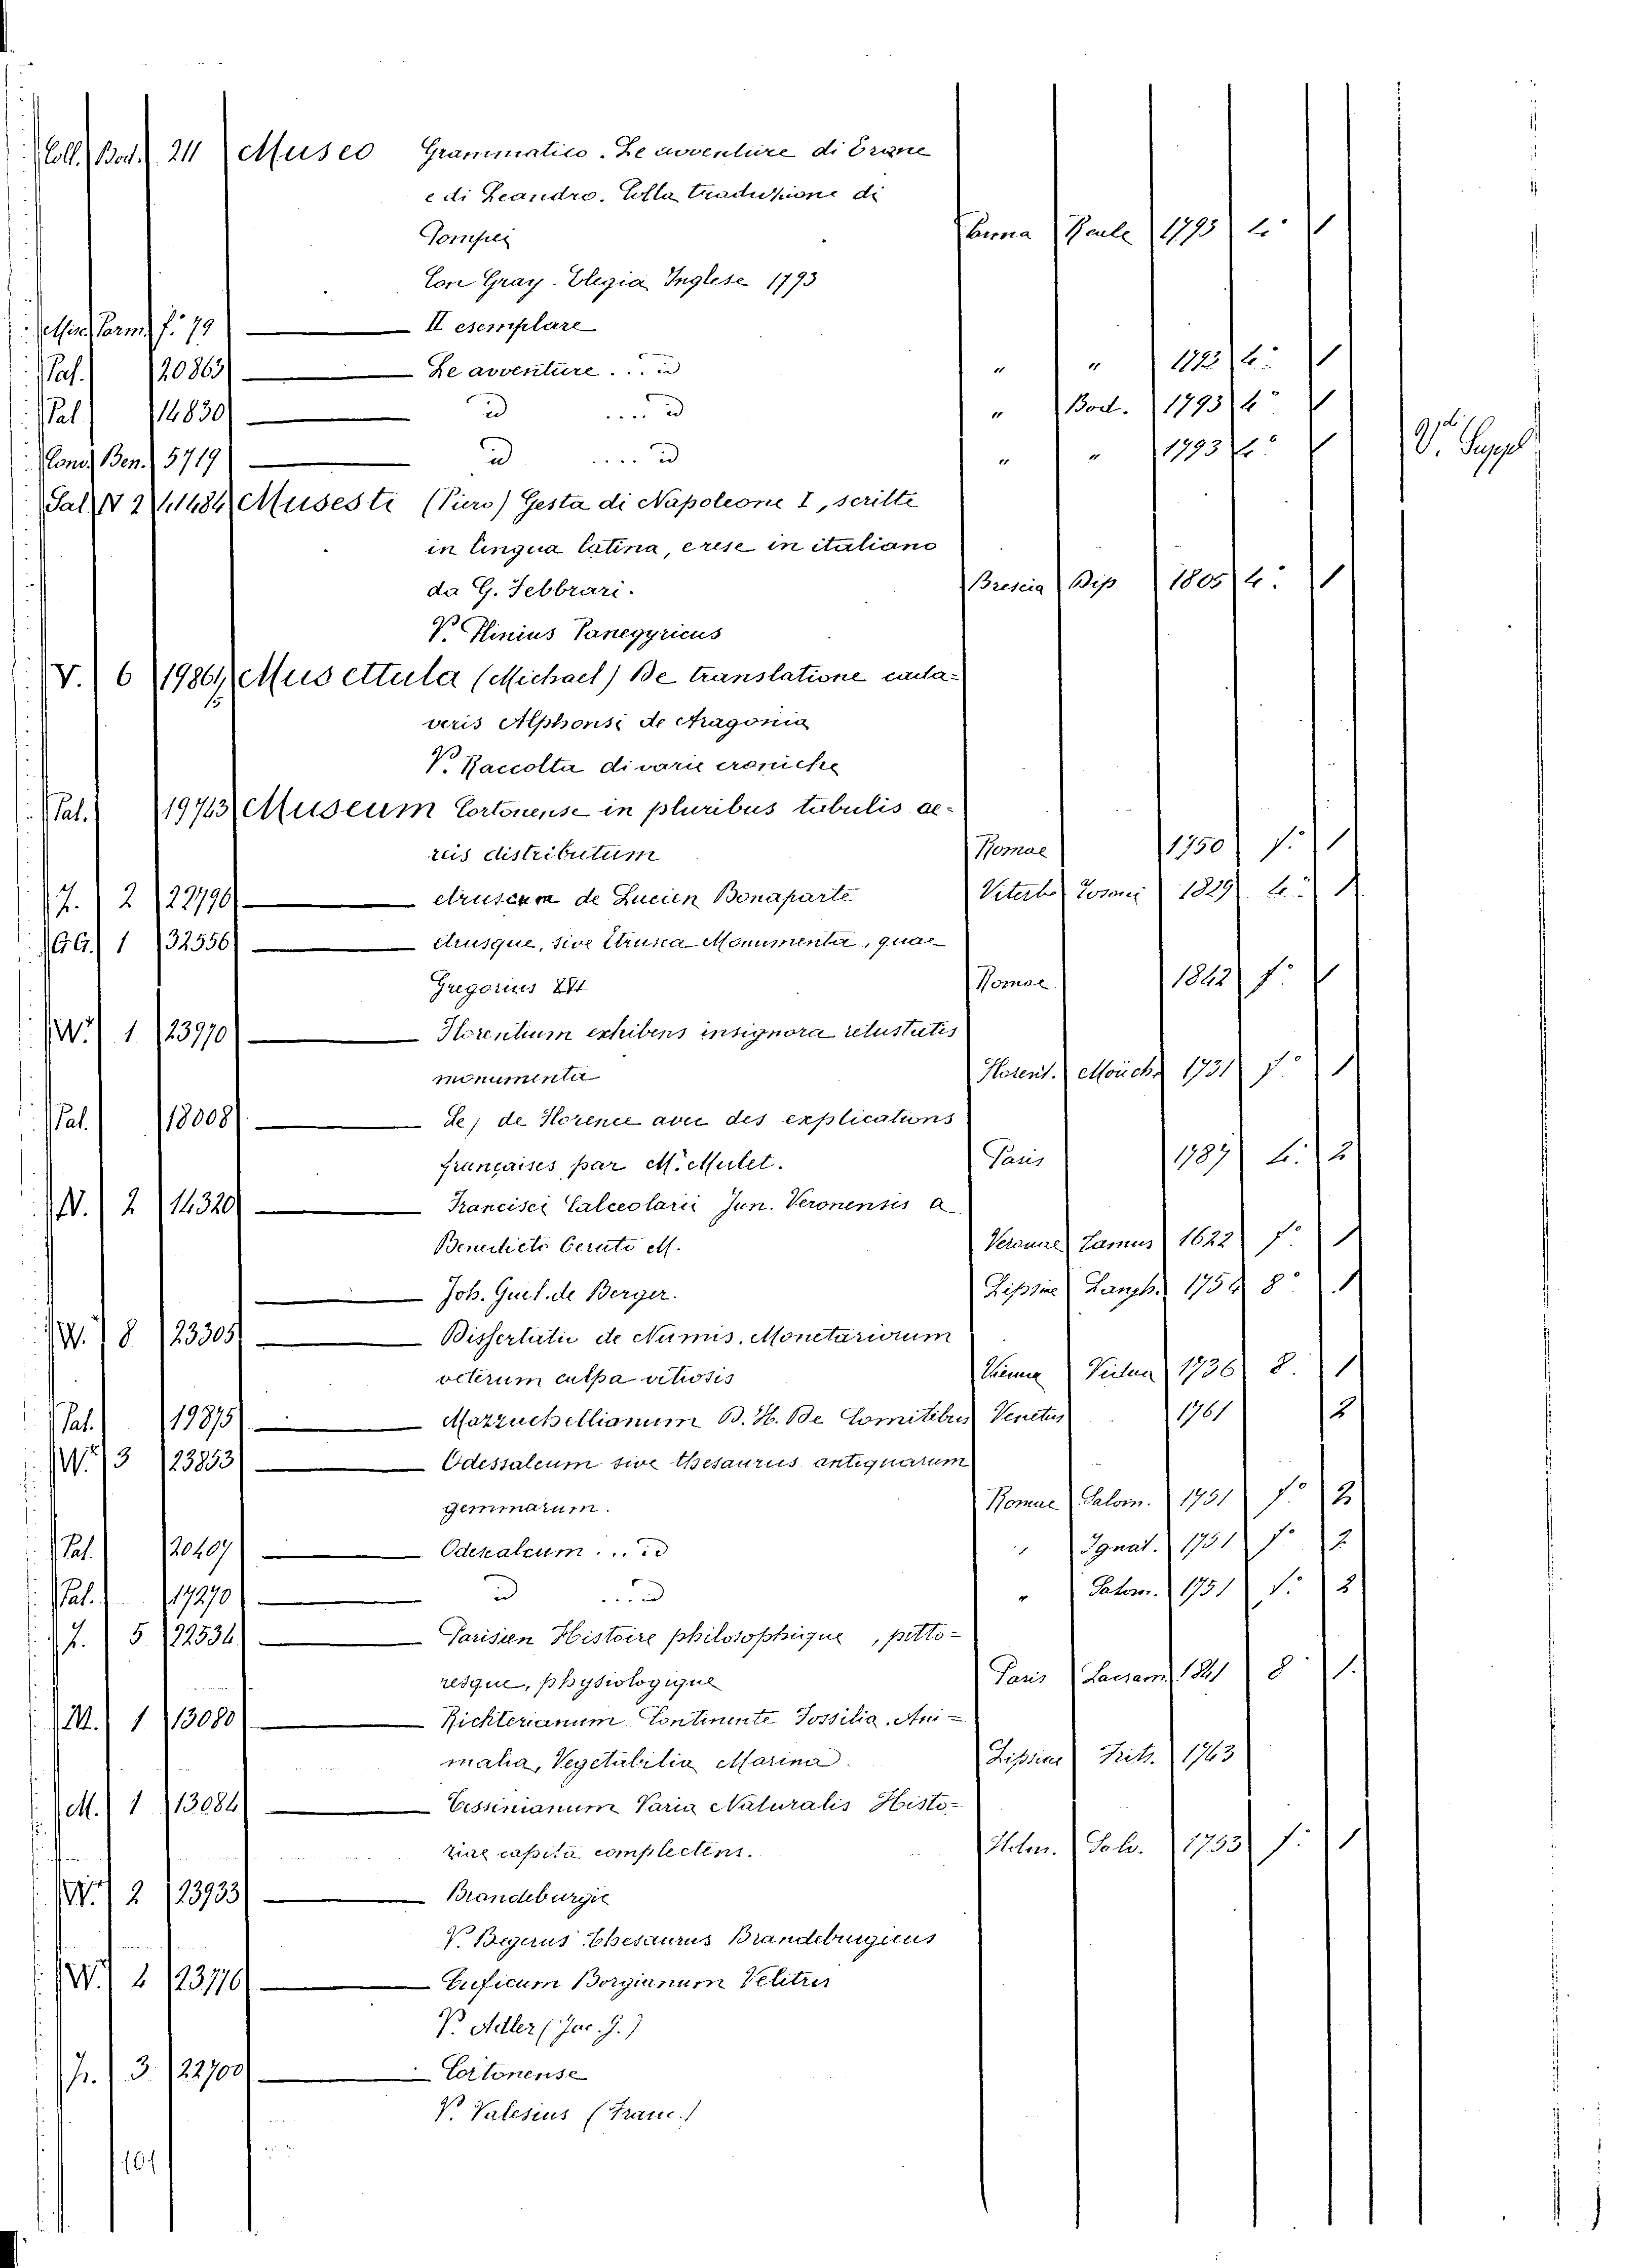 Coll. Bod. 211 Museo Grammatico. Le avventure di Erone
e di Leandro. Colla traduzione di
Pompei Parma Reale 1793 4° 1
Con Gray. Elegia Inglese 1793
Misc. Parm. f.° 79 — II esemplare
Pal. 20863 — Le avventure ... id " " 1793 4° 1
Pal. 14830 — id .... id " Bod. 1793 4° 1
Cond. Ben. 5719 — id .... id " " 1793 4° 1 V. Suppl.
Sal. N 2 41484 Musesti (Piero) Gesta di Napoleone I, scritte
in lingua latina, e rese in italiano
da G. Febbrari. Brescia Dip. 1805 4° 1
V. Plinius Panegyricus
V. 6 19864 Musettula (Michael) De translatione cada-
15
veris Alphonsi de Aragonia
V. Raccolta di varie croniche
Pal. 19763 Museum Cortonense in pluribus tabulis ae-
reis distributum Romae 1750 f.° 1
Z. 2 22796 — etruscum de Lucien Bonaparte Viterbo Tosoni 1829 4° 1
GG. 1 32556 — etrusque, sive Etrusca Monumenta, quae
Gregorius XVI Romae 1842 f.° 1
W. 1 23970 — Florentium exhibens insignora vetustatis
monumenta Florent. Mouch. 1731 f.° 1
Pal. 18008 — de, de Florence avec des explications
françaises par M. Mulet. Paris 1787 4° 2
N. 2 14320 — Francisci Calceolarii Jun. Veronensis a
Benedicto Ceruto M. Veronae Tamus 1622 f.° 1
— Joh. Guil. de Berger. Lipsiae Langh. 1754 8° 1
W. 8 23305 — Dissertatio de Numis. Monetariorum
veterum culpa vitiosis Vienna 1736 8. 1
Pal. 19875 — Mazzuchellianum B. H. De Comitibus Venetus 1761 2
W. 3 23853 — Odessaleum sive thesaurus antiquarum
gemmarum. Romae Salom. 1751 f.° 2
Pal. 20407 — Odescaleum ... id " Ignat. 1751 f.° 2
Pal. 17270 — id ... id " Salom. 1751 f.° 2
Z. 5 22534 — Parisien Histoire philosophique, pitto-
resque, physiologique Paris 1841 8. 1.
M. 1 13080 — Richterianum Continente Fossilia, Ani-
malia, Vegetabilia Marina. Lipsiae Frits. 1743
M. 1 13084 — Tessinianum Varia Naturalis Histo-
riae capita complectens. Holm. Solv. 1753 f.° 1
W. 2 23933 — Brandeburgie
V. Begerus Thesaurus Brandeburgicus
W. 2 23776 — Cuficum Borgianum Velitris
V. Adler (Jac. G.)
Z. 3 22700 — Cortonense
V. Valesius (Franc.)
101